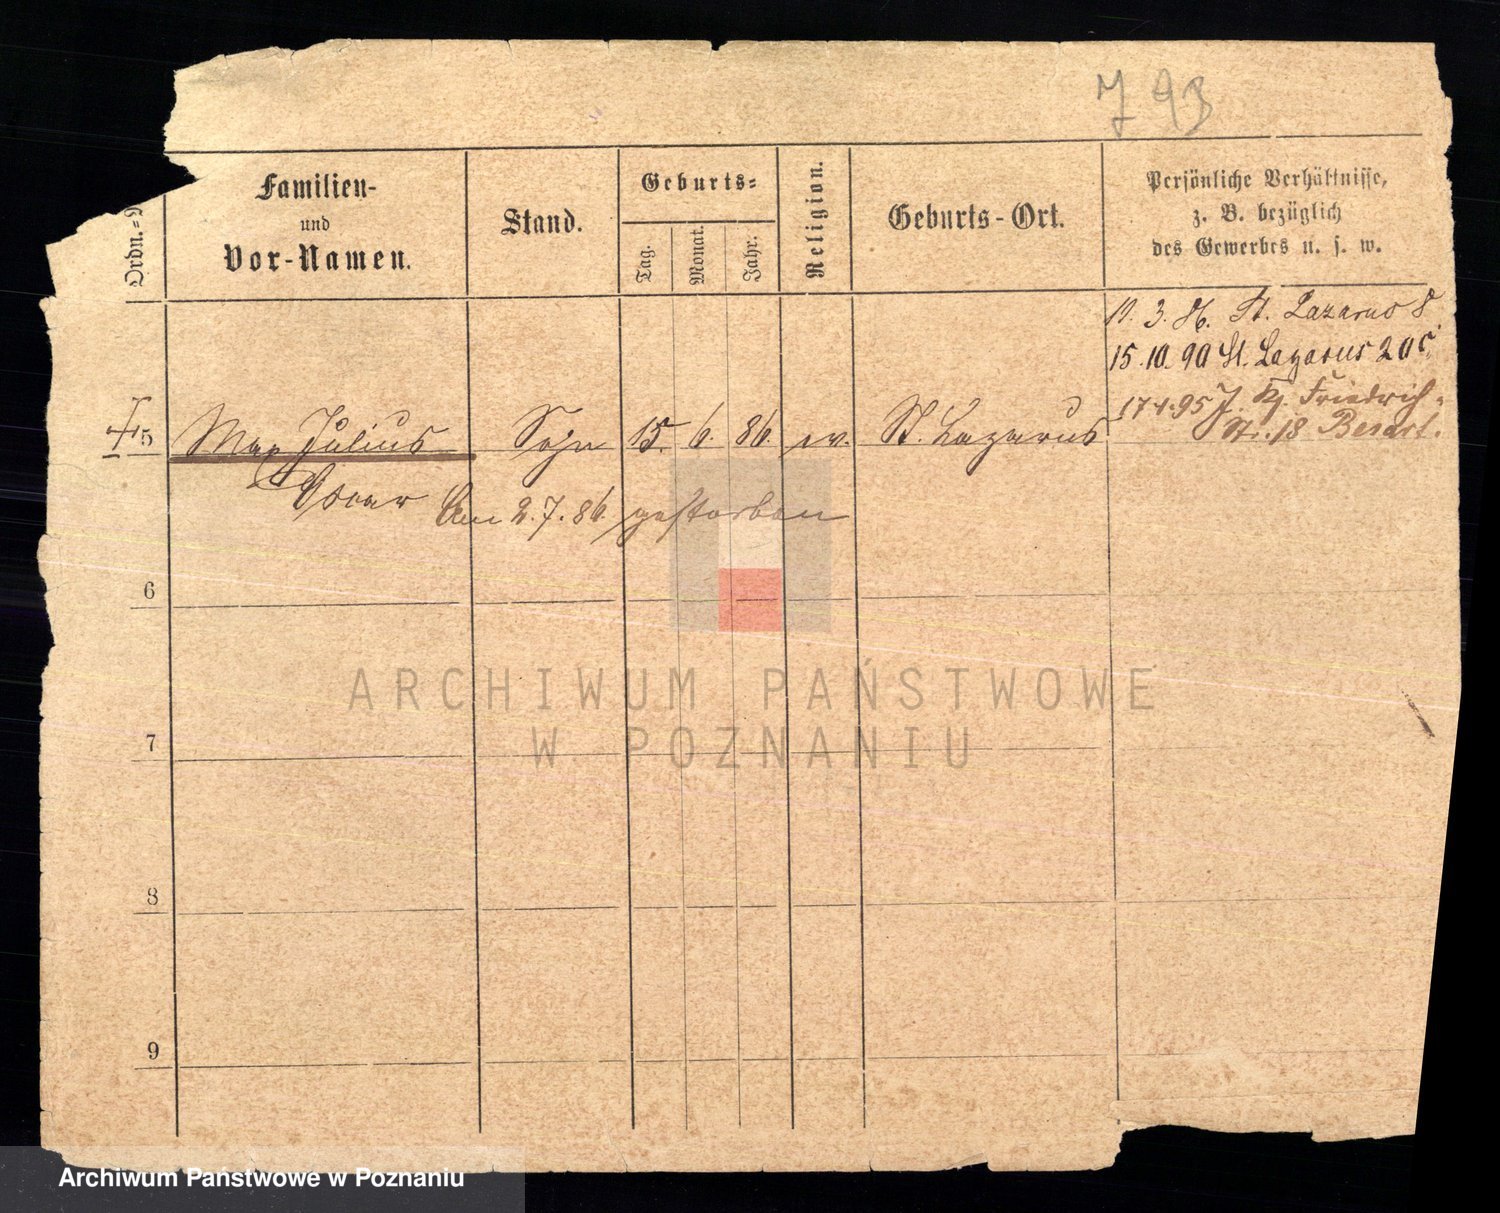 793
Ordn.=N
Familien-
und
Vor-Namen.
Stand.
Geburts=
Tag.
Monat.
Jahr.
Religion.
Geburts-Ort.
Persönliche Verhältnisse,
z. B. bezüglich
des Gewerbes u. s. w.
19. 3. 86. St. Lazarus 8
15.10.90 St. Lazarus 20c
Friedrich-
Str. 18
5 Max Julius Sohn 15. 6. 86. ev. St. Lazarus
Oscar Am 2.7.86. gestorben
6
7
8
9
ARCHIWUM PAŃSTWOWE
W POZNANIU
Archiwum Państwowe w Poznaniu